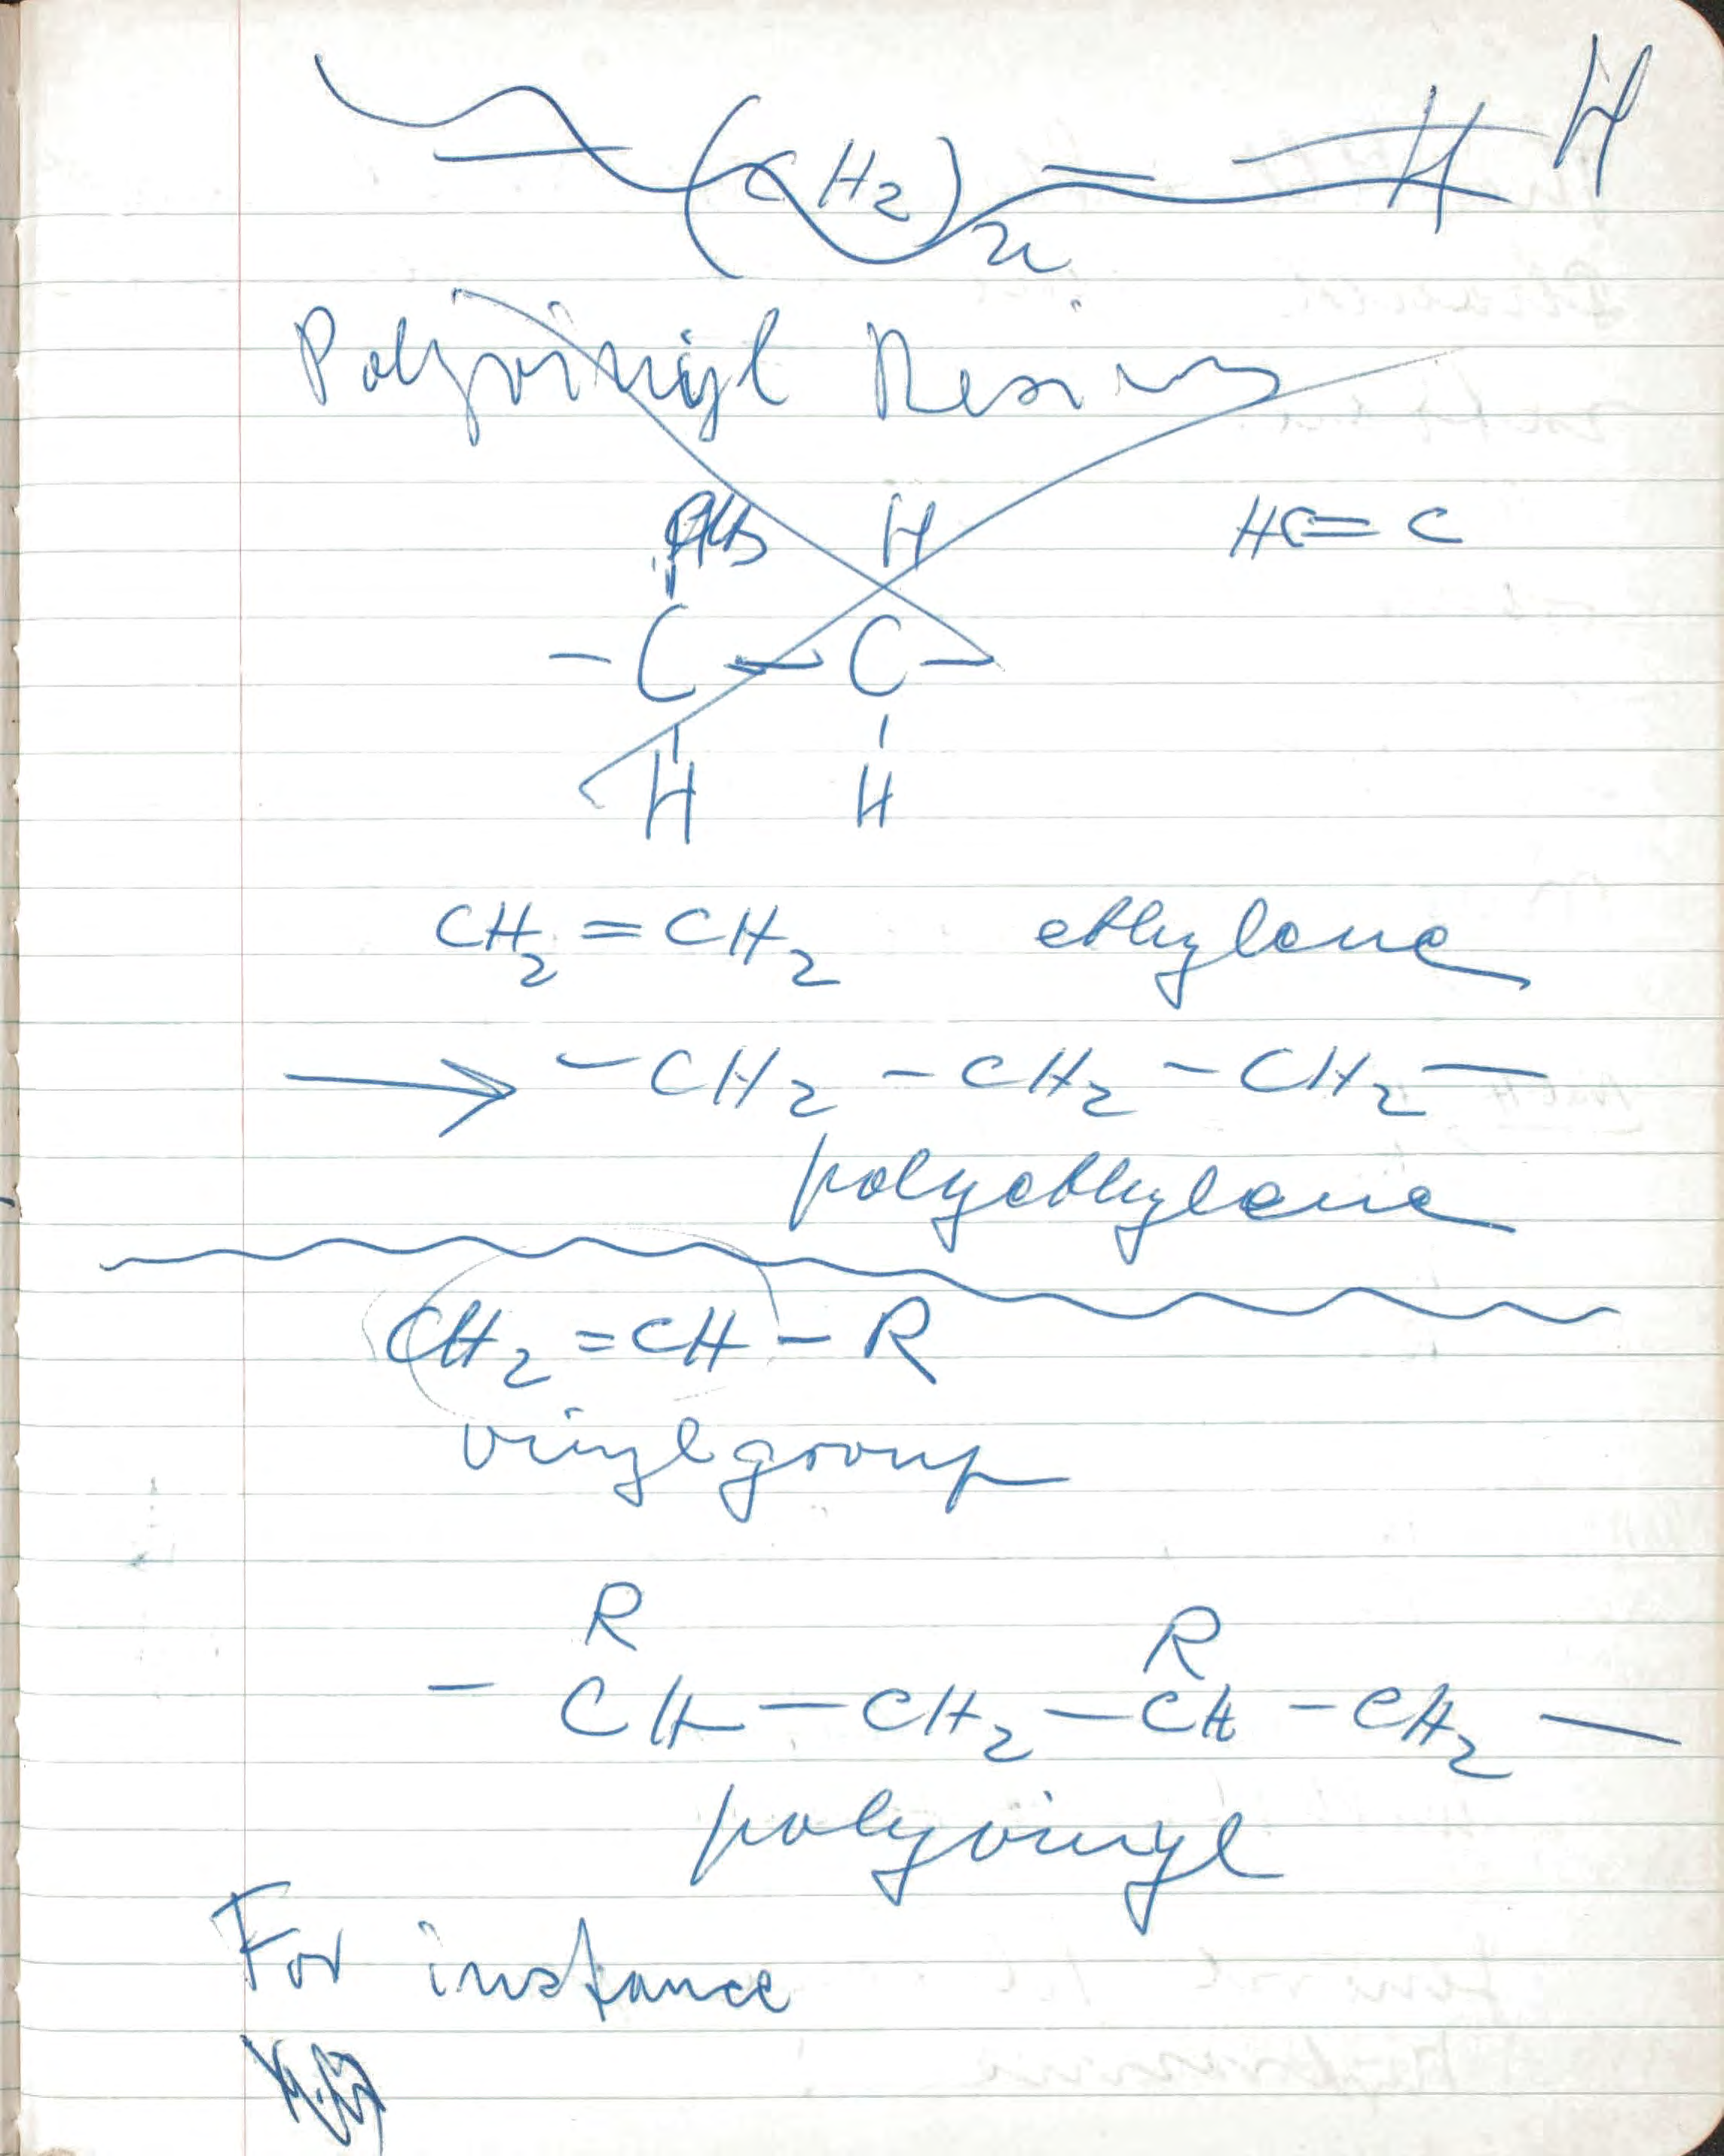 — (CH2)n = H H
Polyvinyl Resins
H HC = C
- C - C -
H H
CH2 = CH2 ethylene
→ - CH2 - CH2 - CH2 -
polyethylene
CH2 = CH - R
vinyl group
R R
- CH - CH2 - CH - CH2 -
polyvinyl
For instance